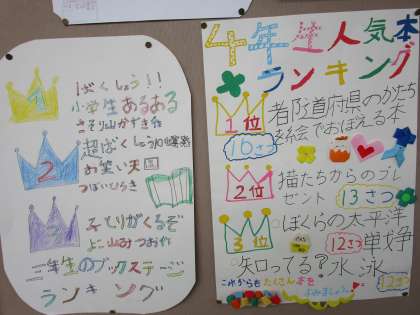 1
ばくしょう!!
小学生あるある
2
超ばくしょう
お笑い天国
つぼいひろき
3
みどりがくるぞ
よこ山みつお作
二年生のブックステージ
ランキング
4年生人気本
ランキング
1位
都道府県のかたち
を絵でおぼえる本
16さつ
2位
猫たちからのプレ
ゼント
13さつ
3位
ぼくらの太平洋
戦争
12さつ
知ってる?水泳
12さつ
これからもたくさん本を
よみましょう!